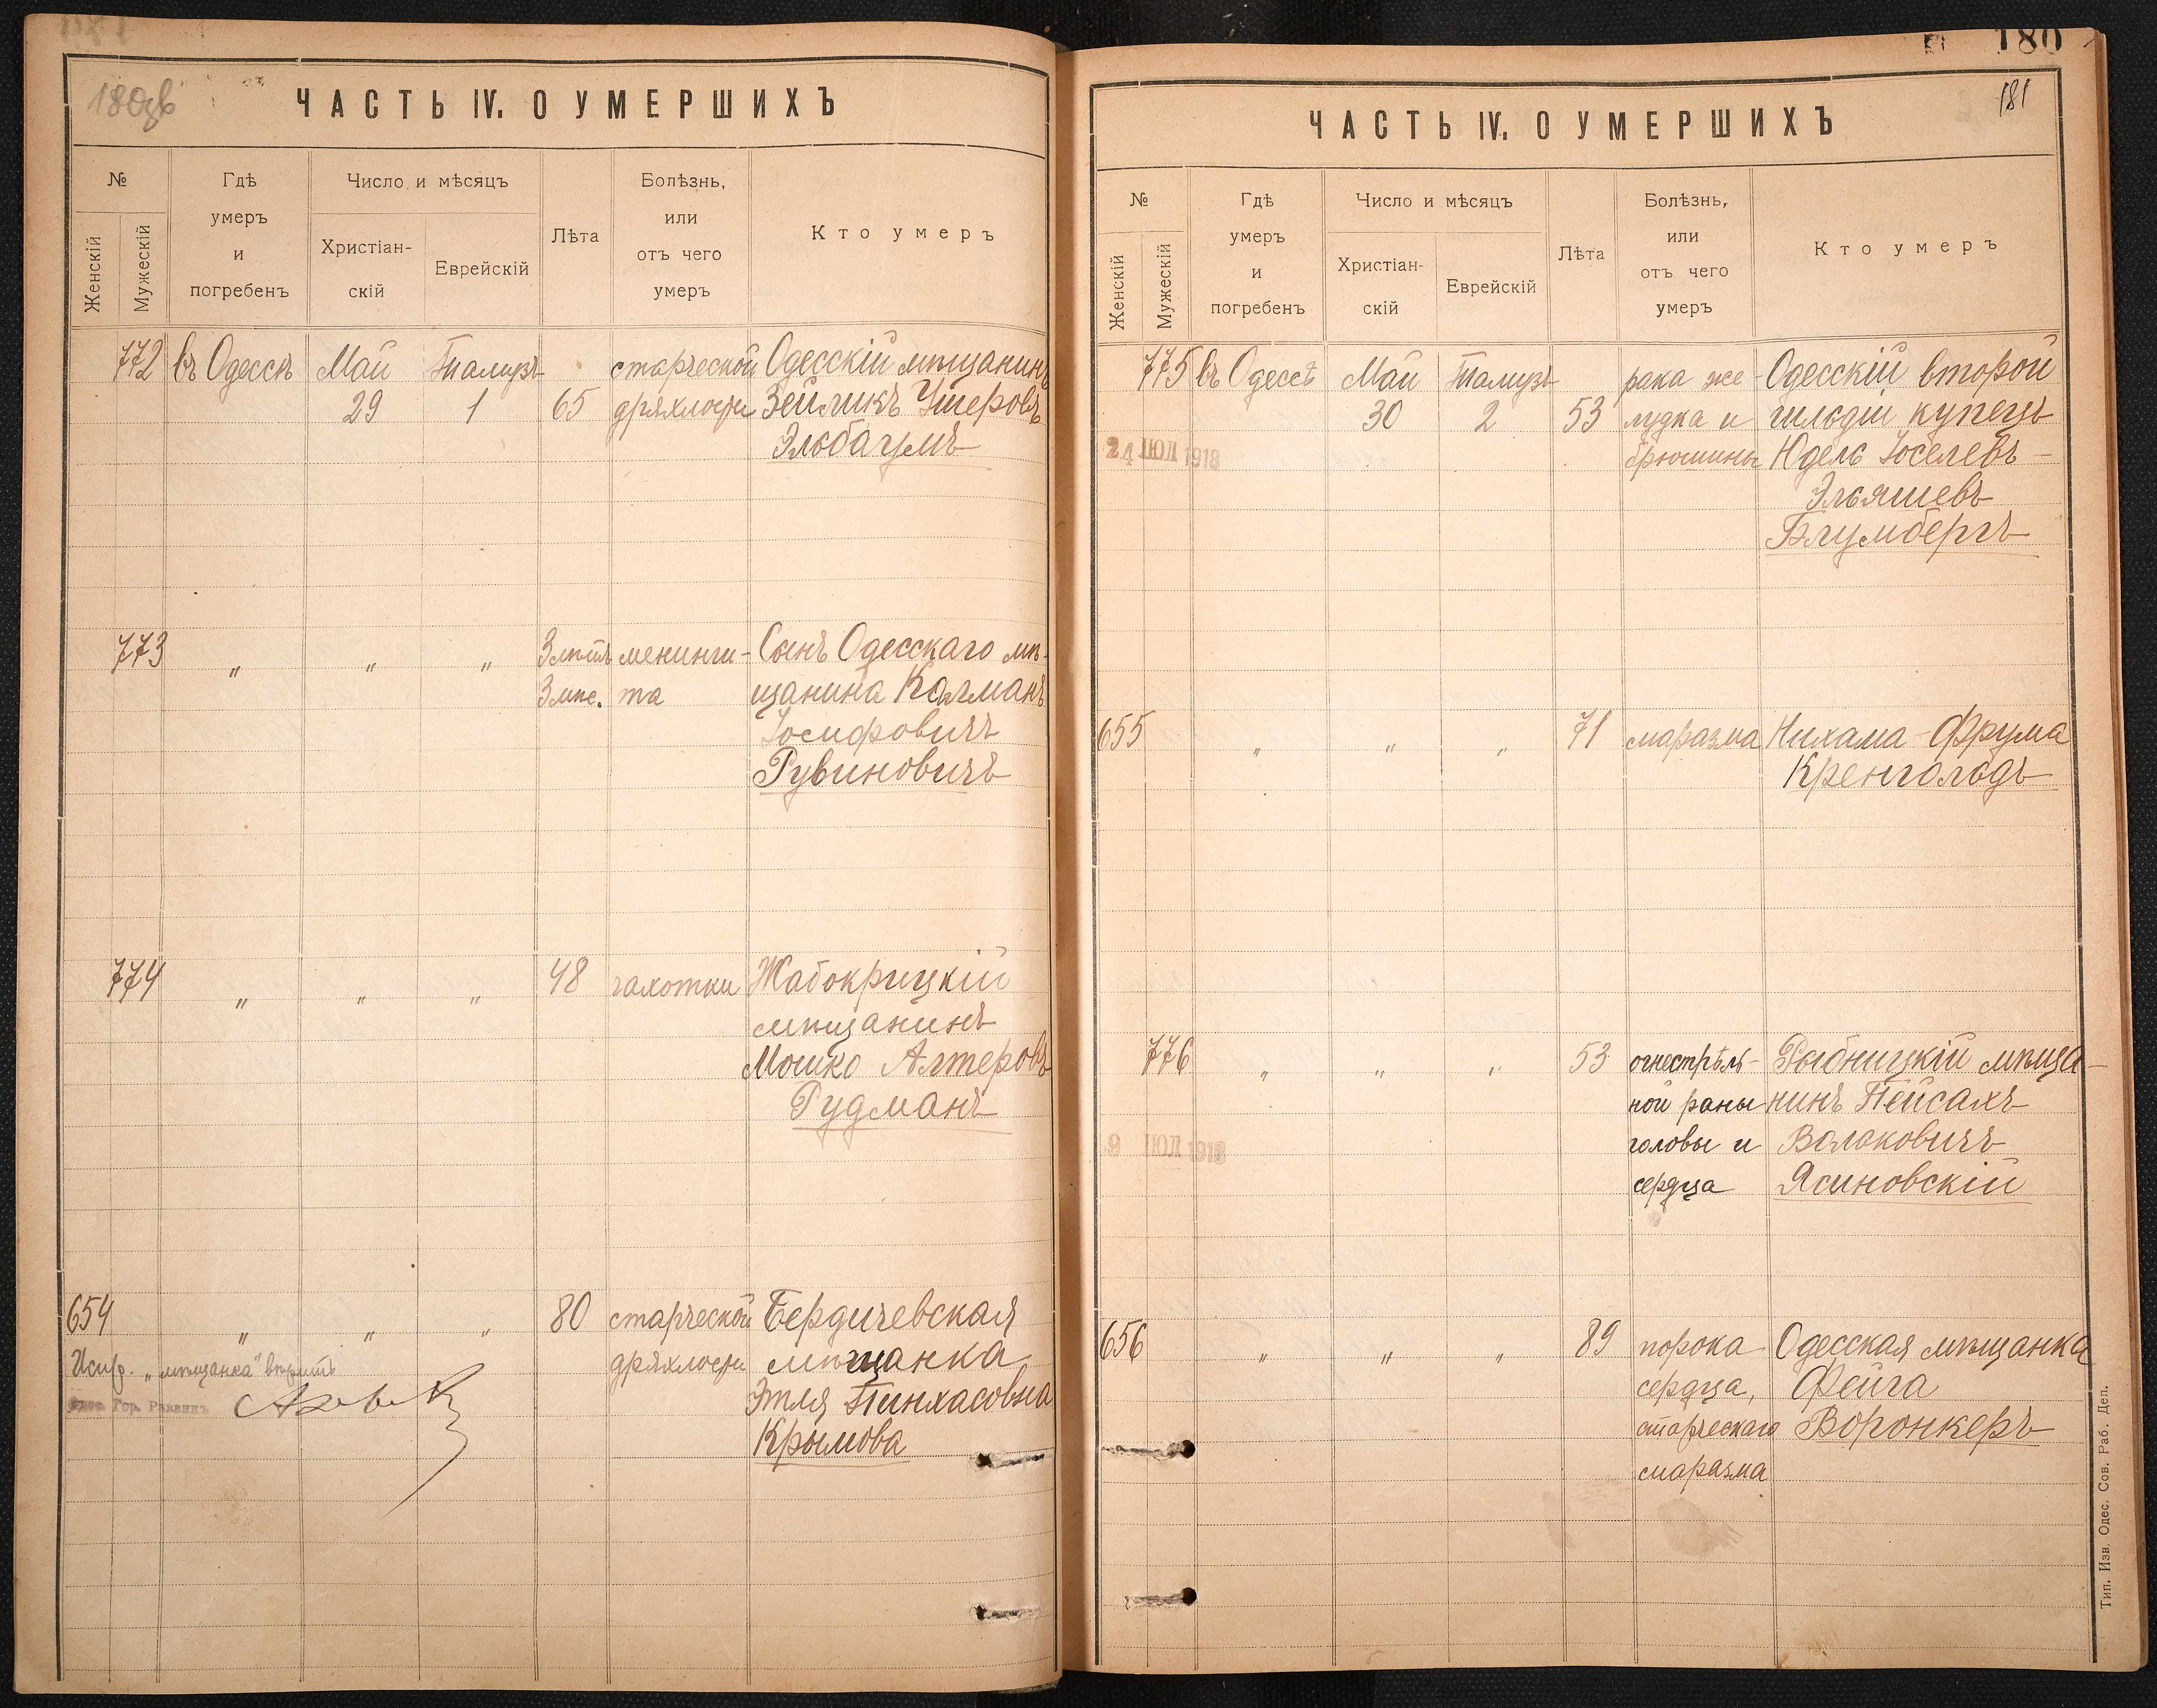 180об
ЧАСТЬ IV. О УМЕРШИХЪ
№
Женскій
Мужескій
Гдѣ
умеръ
и
погребенъ
Число и мѣсяцъ
Христіан-
скій
Еврейскій
Лѣта
Болѣзнь,
или
отъ чего
умеръ
Кто умеръ
772 въ Одессѣ Май Тамузъ старческой Одесскій мѣщанинъ
29 1 65 дряхлости Зейликъ Ушеровъ
Эльбаумъ
773 „ „ „ 3 лѣтъ менинги- Сынъ Одесскаго мѣ-
3 мѣс. та щанина Калманъ
Іосифовичъ
Рувиновичъ
774 „ „ „ 48 чахотки Жабокрицкій
мѣщанинъ
Мошко Алтеровъ
Рудманъ
654 „ „ „ 80 старческой Бердичевская
Испр. „мѣщанка“ вѣрить дряхлости мѣщанка
Одес. Гор. Раввинъ Этля Пинхасовна
Крымова
180
181
ЧАСТЬ IV. О УМЕРШИХЪ
№
Женскій
Мужескій
Гдѣ
умеръ
и
погребенъ
Число и мѣсяцъ
Христіан-
скій
Еврейскій
Лѣта
Болѣзнь,
или
отъ чего
умеръ
Кто умеръ
775 въ Одессѣ Май Тамузъ рака же- Одесскій второй
30 2 53 лудка и гильдіи купецъ
24 ІЮЛ 1918 брюшины Юдель Іоселевъ-
Эльяшевъ
Блумбергъ
655 „ „ „ 71 маразма Нихама-Фрума
Кренгольдъ
776 „ „ „ 53 огнестрѣль- Рыбницкій мѣща-
ной раны нинъ Пейсахъ
9 ІЮЛ 1918 головы и Волоковичъ
сердца Ясиновскій
656 „ „ „ 89 порока Одесская мѣщанка
сердца, Фейга
старческаго Воронкеръ
маразма
Тип. Изв. Одес. Сов. Раб. Деп.